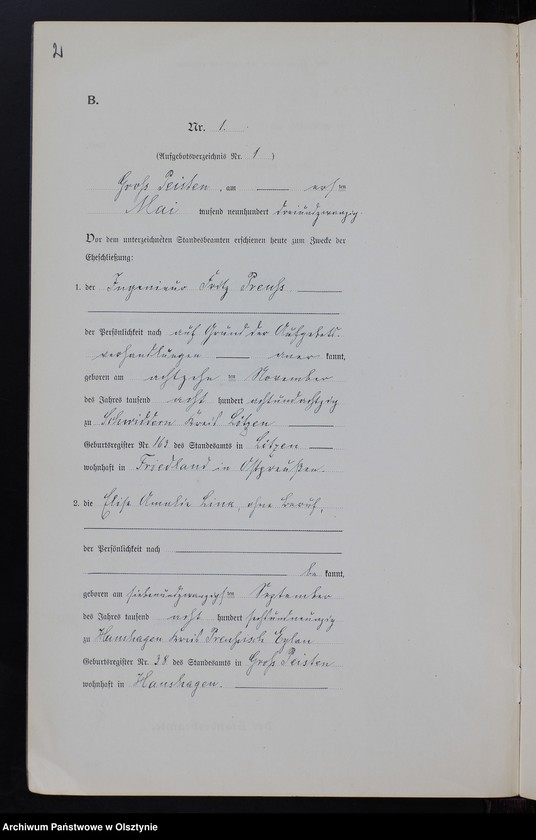 2
B.
Nr. 1.
(Aufgebotsverzeichnis Nr. 1)
Groß Peisten, am ersten
Mai tausend neunhundert dreiundzwanzig
Vor dem unterzeichneten Standesbeamten erschienen heute zum Zwecke der
Eheschließung:
1. der Ingenieur Fritz Preuß
der Persönlichkeit nach auf Grund der Aufgebots-
verhandlungen anerkannt,
geboren am achtzehnten November
des Jahres tausend acht hundert achtundachtzig
zu Schwiddern Kreis Lötzen
Geburtsregister Nr. 163 des Standesamts in Lötzen
wohnhaft in Friedland in Ostpreußen.
2. die Elise Amalie Link, ohne Beruf,
der Persönlichkeit nach
bekannt,
geboren am siebenundzwanzigsten September
des Jahres tausend acht hundert sechsundneunzig
zu Hanshagen Kreis Preußisch Eylau
Geburtsregister Nr. 38 des Standesamts in Groß Peisten
wohnhaft in Hanshagen.
Archiwum Państwowe w Olsztynie